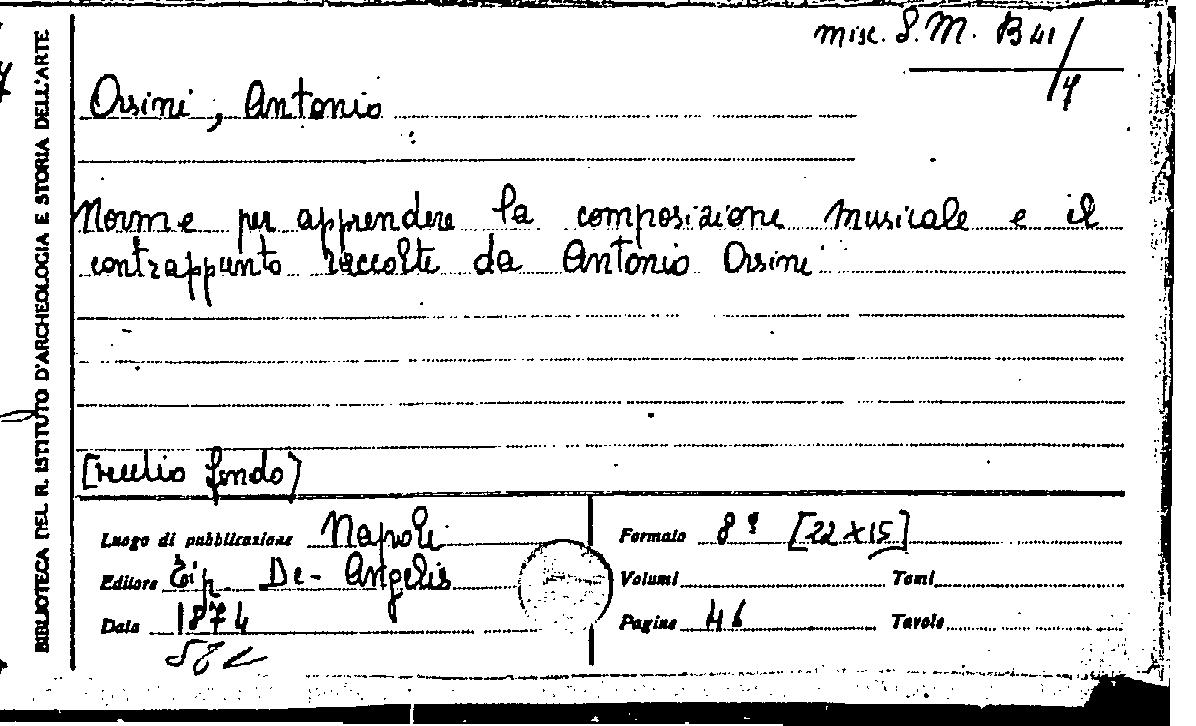 misc. S.M. B 41/
7
Orsini, Antonio
Norme per apprendere la composizione musicale e il
contrappunto raccolte da Antonio Orsini
[vecchio fondo]
Luogo di pubblicazione Napoli
Editore Tip. De-Angelis
Data 1874
Formato 8º [22 x 15]
Volumi Tomi
Pagine 46 Tavole
BIBLIOTECA DEL R. ISTITUTO D'ARCHEOLOGIA E STORIA DELL'ARTE